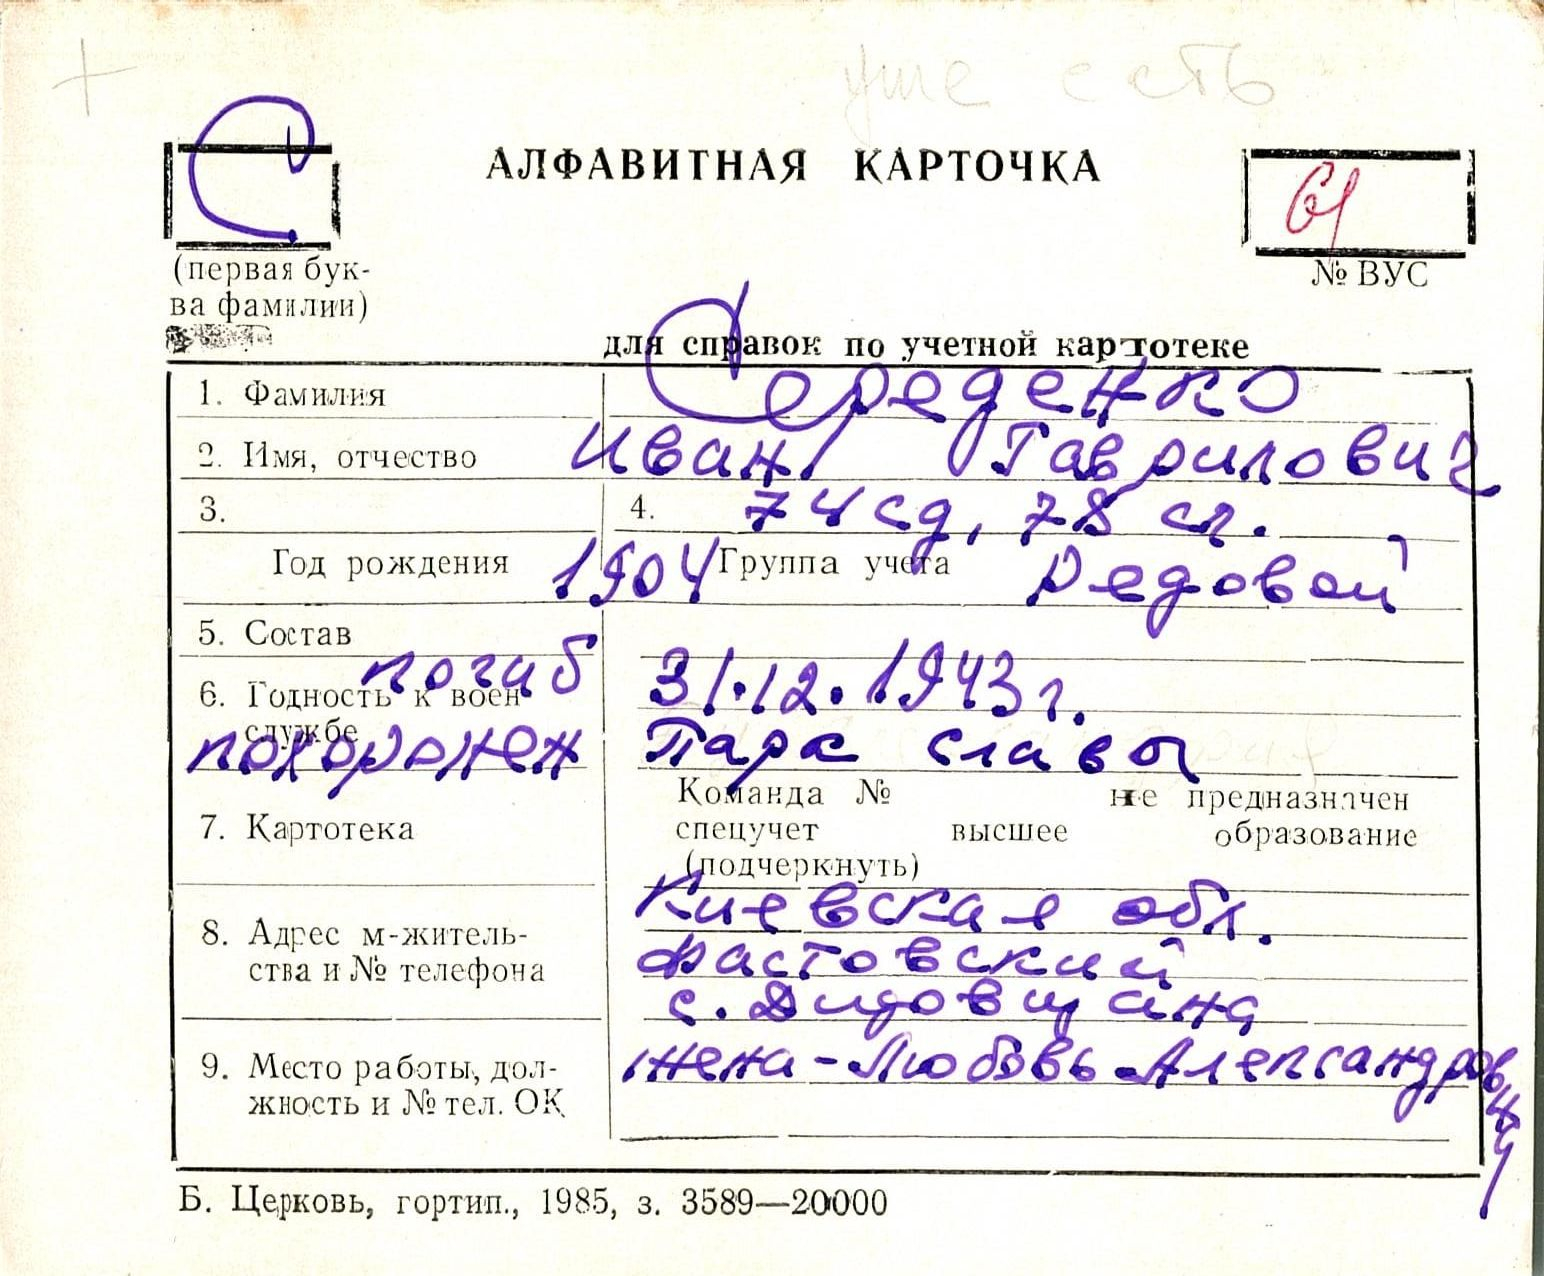 + уже есть
С
АЛФАВИТНАЯ КАРТОЧКА
61
(первая бук-
ва фамилии)
№ ВУС
для справок по учетной картотеке
1. Фамилия Середенко
2. Имя, отчество Иван Гаврилович
3. 4. 74 сд, 78 сп.
Год рождения 1904 Группа учета Редовой
5. Состав
погиб 31.12.1943 г.
6. Годность к воен
службе
похоронен Парк славы
Команда № не предназначен
7. Картотека спецучет высшее образование
(подчеркнуть)
Киевская обл.
8. Адрес м-житель- Фастовский
ства и № телефона с. Дидовщина
9. Место работы, дол- жена - Любовь Александровна
жность и № тел. ОК
Б. Церковь, гортип., 1985, з. 3589—20000